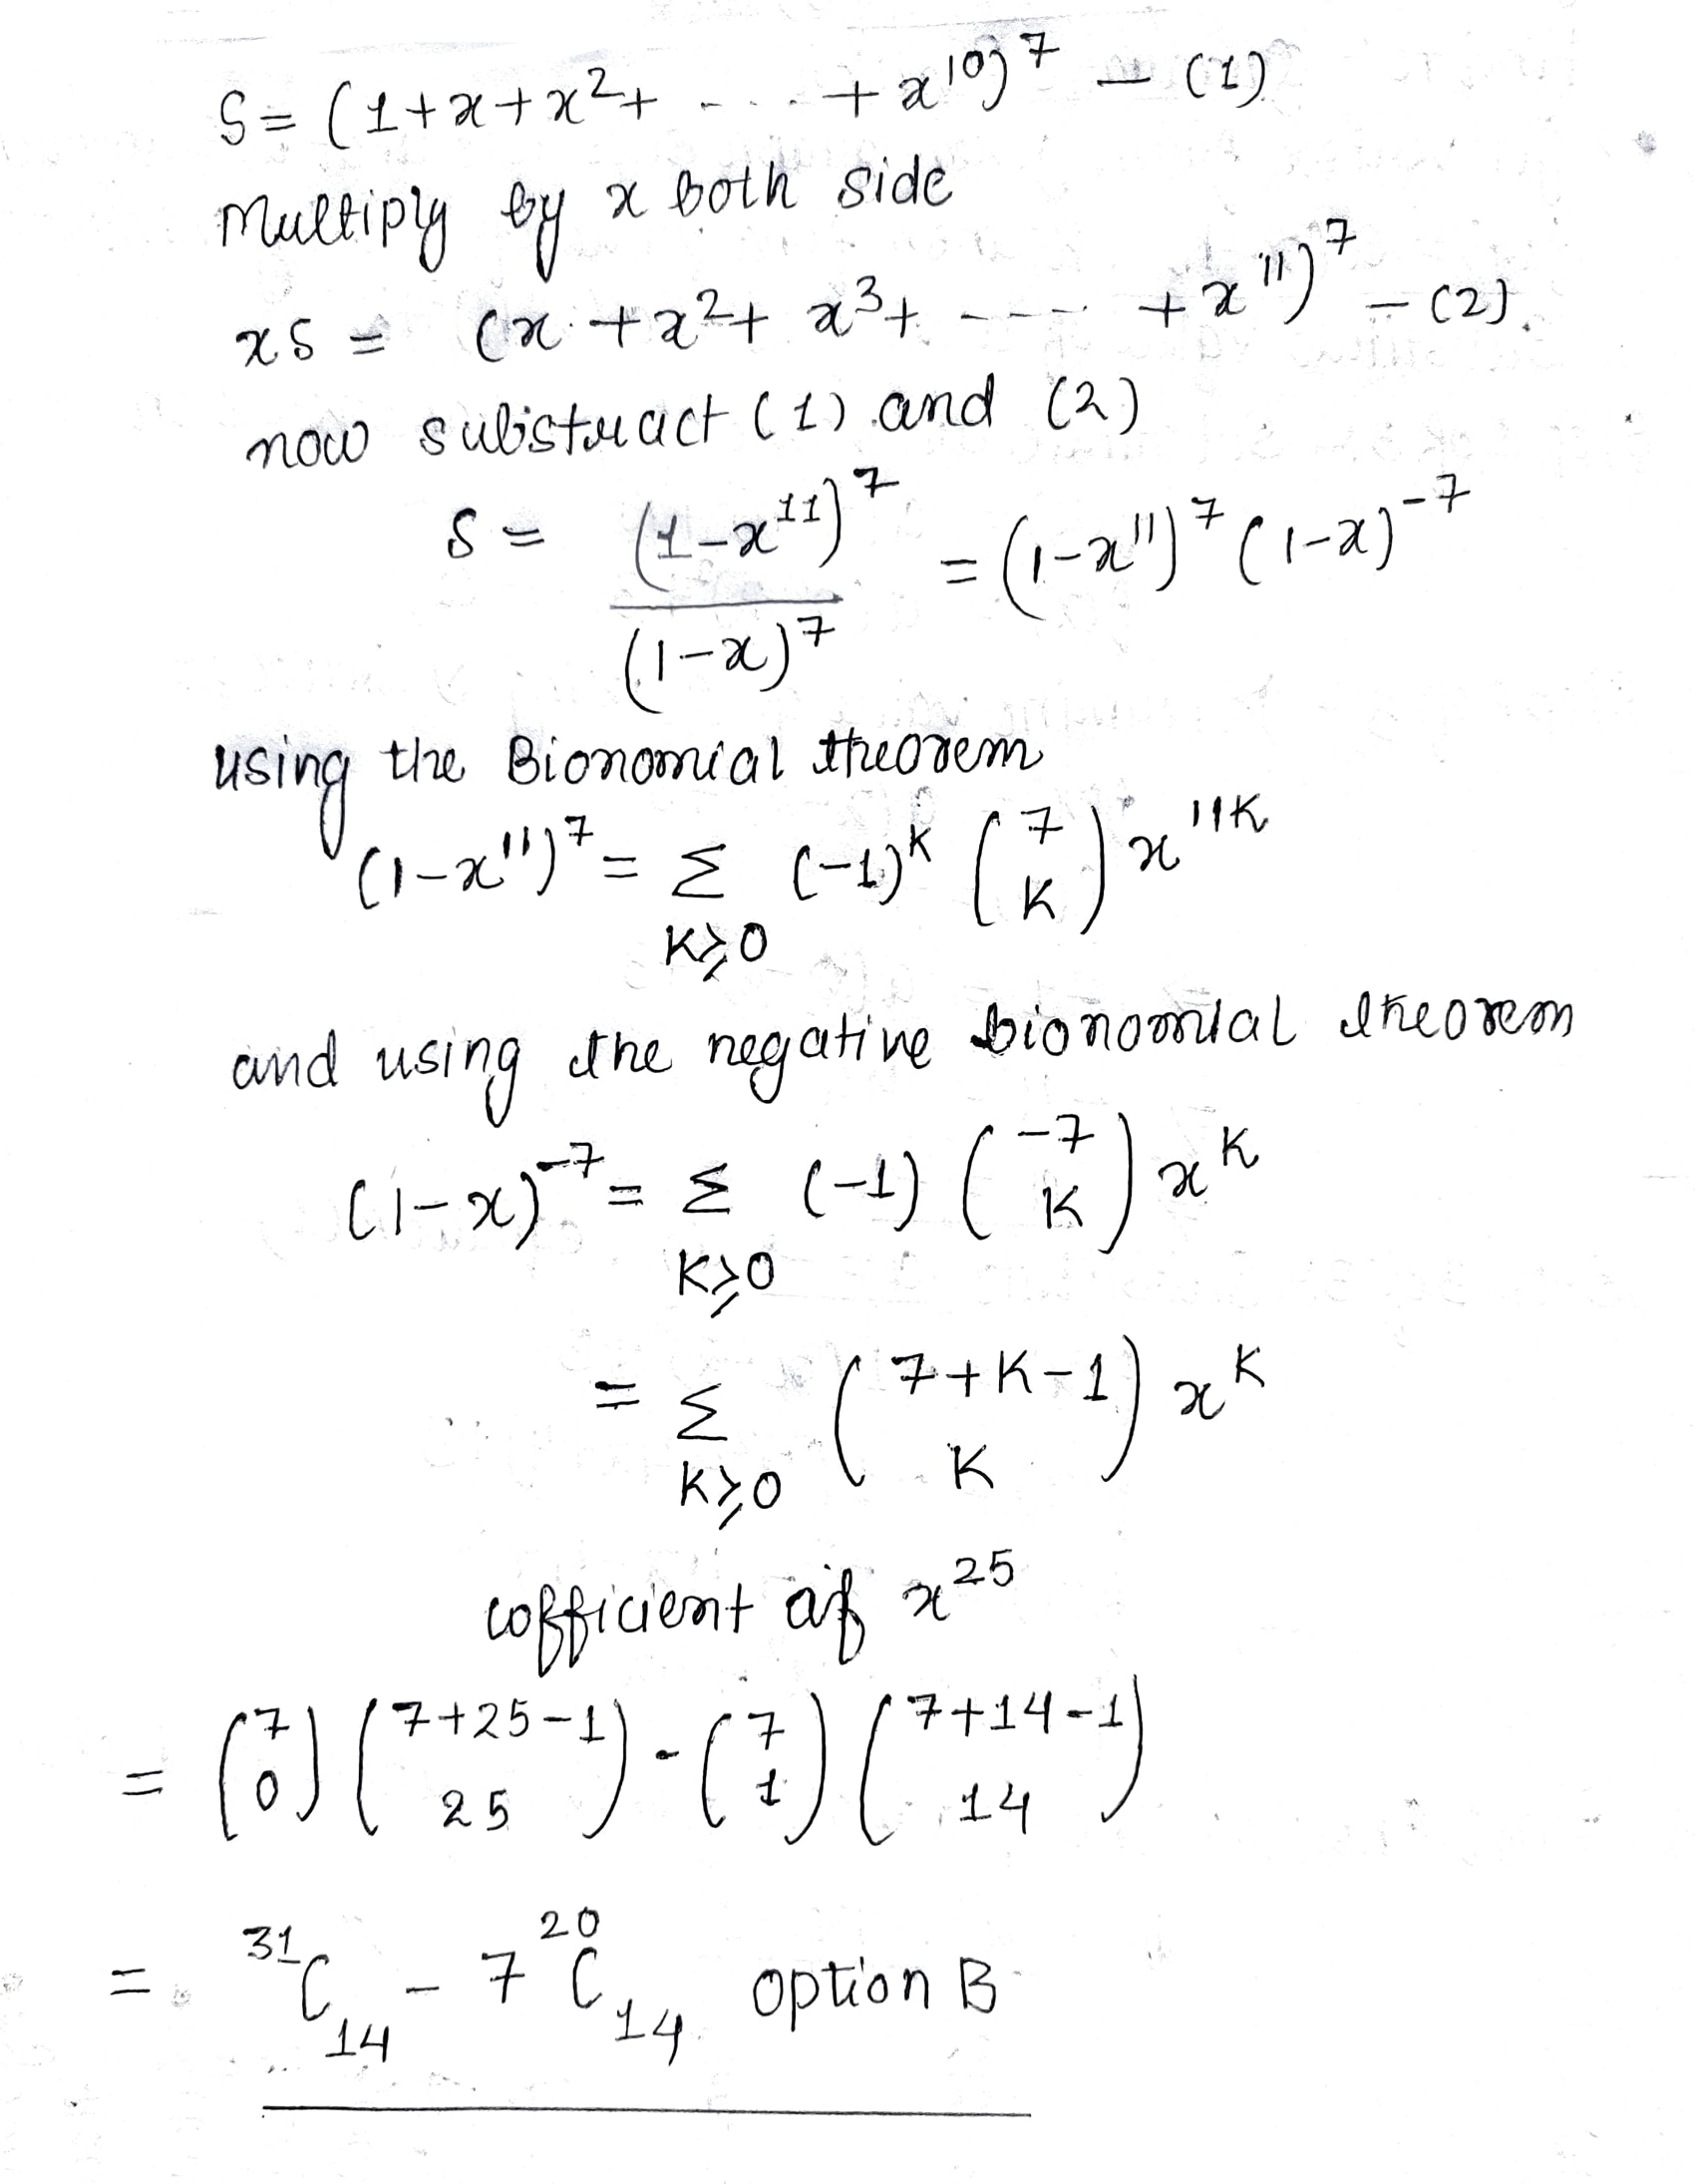 S = (1+x+x²+ - - - - +x¹⁰)⁷ — (1)
Multiply by x both side
xS = (x+x²+x³+ - - - - +x¹¹)⁷ — (2)
now substract (1) and (2)
S = (1-x¹¹)⁷ / (1-x)⁷ = (1-x¹¹)⁷ (1-x)⁻⁷
using the Bionomial theorem
(1-x¹¹)⁷ = Σ_{K≥0} (-1)^K (7 K) x^{11K}
and using the negative bionomial theorem
(1-x)⁻⁷ = Σ_{K≥0} (-1) (-7 K) x^K
= Σ_{K≥0} (7+K-1 K) x^K
cofficient of x²⁵
= (7 0) (7+25-1 25) - (7 1) (7+14-1 14)
= ³¹C₁₄ - 7 ²⁰C₁₄ option B